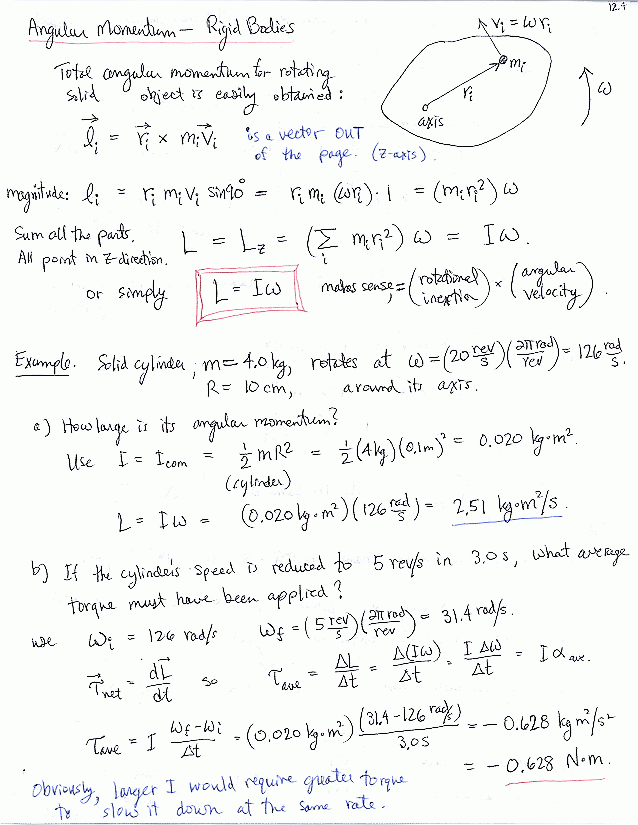 12.4
Angular Momentum — Rigid Bodies
Total angular momentum for rotating
solid object is easily obtained:
v⃗i = ωri
mi
ri
axis
ω
l⃗i = r⃗i × miv⃗i is a vector OUT
of the page. (z-axis).
magnitude: li = ri mi vi sin90° = ri mi (ωri)·1 = (miri²) ω
Sum all the parts. L = Lz = (∑i miri²) ω = Iω.
All point in z-direction.
or simply L = Iω makes sense, = (rotational inertia) × (angular velocity).
Example. Solid cylinder, m = 4.0 kg, rotates at ω = (20 rev/s)(2π rad/rev) = 126 rad/s.
R = 10 cm, around its axis.
a) How large is its angular momentum?
Use I = Icom = 1/2 mR² = 1/2 (4kg)(0.1m)² = 0.020 kg·m².
(cylinder)
L = Iω = (0.020 kg·m²)(126 rad/s) = 2.51 kg·m²/s.
b) If the cylinder's speed is reduced to 5 rev/s in 3.0 s, what average
torque must have been applied?
use ωi = 126 rad/s ωf = (5 rev/s)(2π rad/rev) = 31.4 rad/s.
τ⃗net = dL⃗/dt so τave = ΔL/Δt = Δ(Iω)/Δt = I Δω/Δt = I αave.
τave = I ωf-ωi/Δt = (0.020 kg·m²) (31.4-126 rad/s)/3.0s = -0.628 kg m²/s²
= -0.628 N·m.
Obviously, larger I would require greater torque
to slow it down at the same rate.